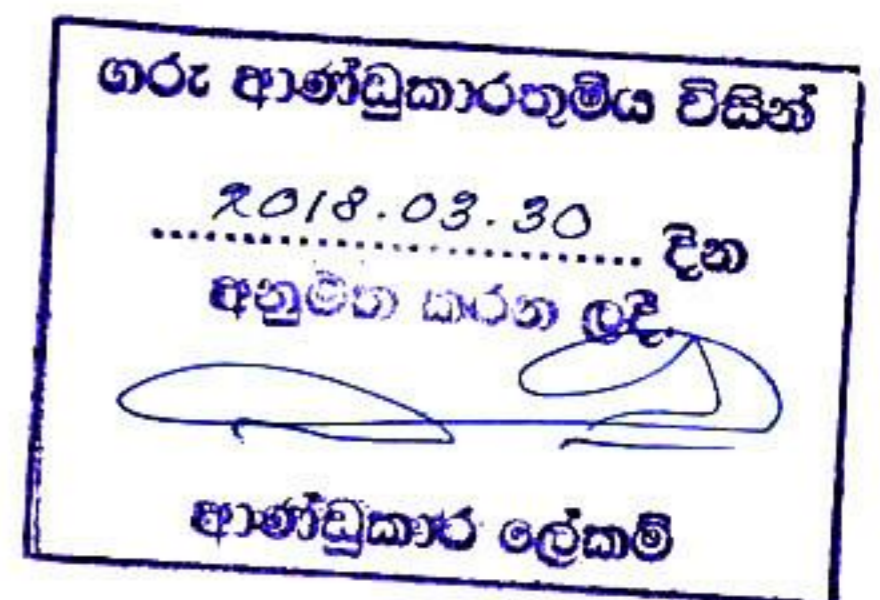 ගරු ආණ්ඩුකාරතුමිය විසින්
2018.03.30 දින
අනුමත කරන ලදී.
ආණ්ඩුකාර ලේකම්